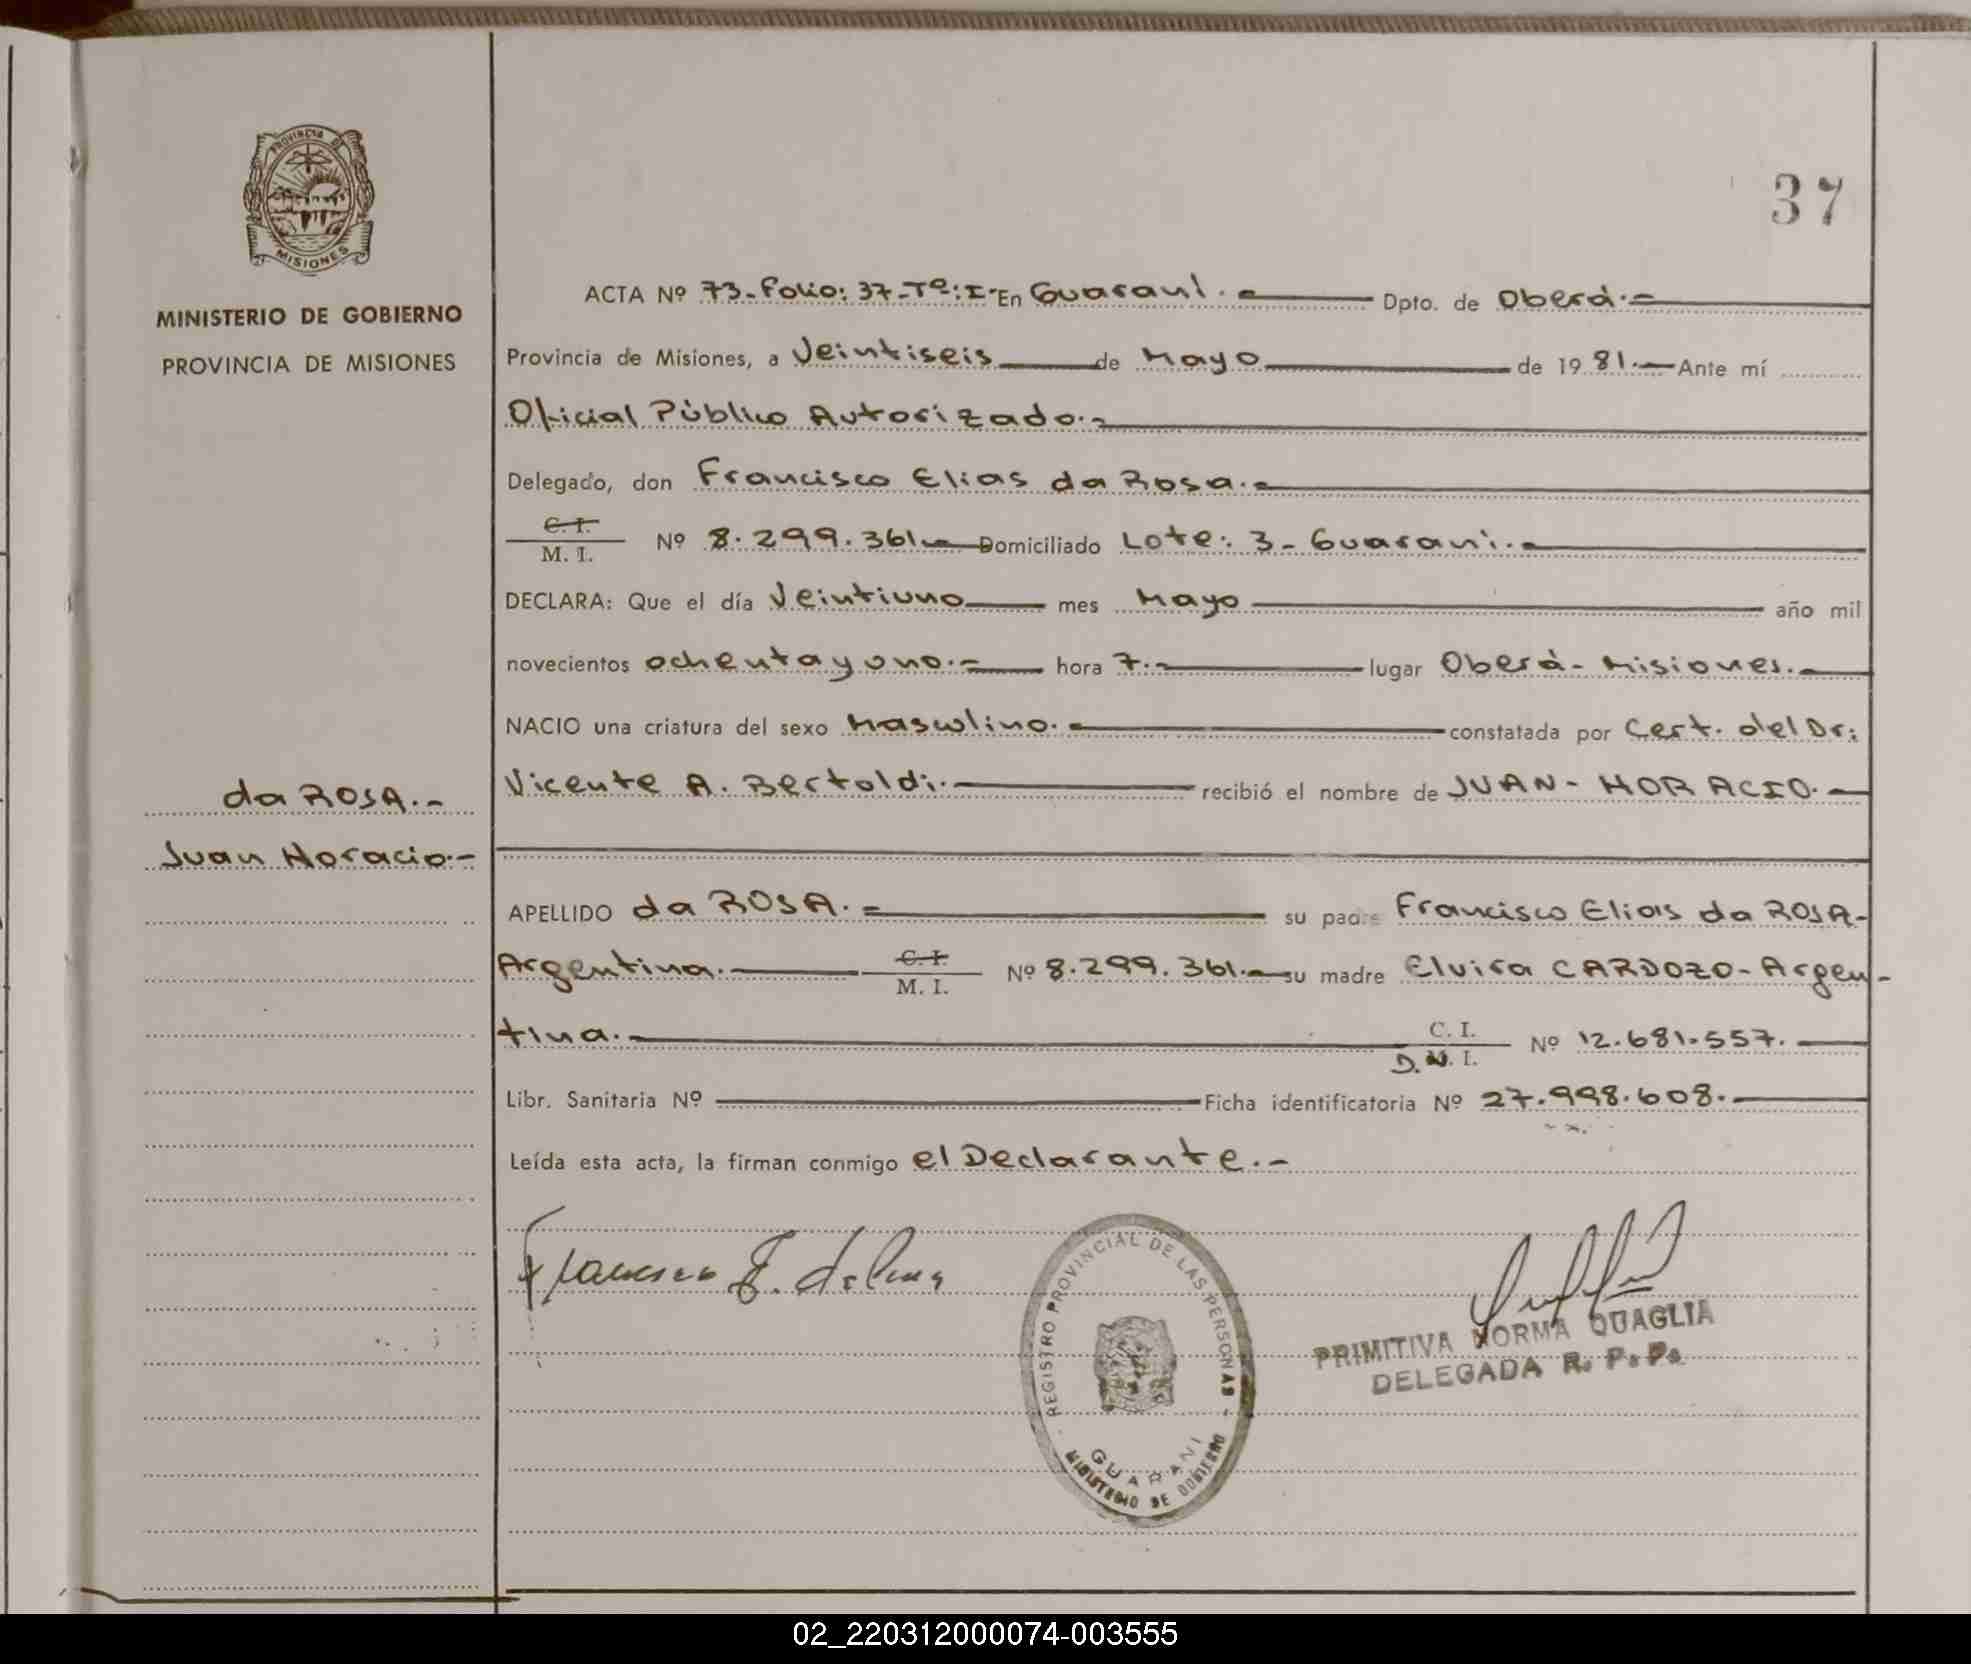 37
PROVINCIA DE
MISIONES
MINISTERIO DE GOBIERNO
PROVINCIA DE MISIONES
da ROSA.-
Juan Horacio.-
ACTA Nº 73-Folio: 37-Tº: I- En Guaraní.- Dpto. de Oberá.-
Provincia de Misiones, a Veintiseis de Mayo de 1981.- Ante mí
Oficial Público Autorizado.-
Delegado, don Francisco Elias da Rosa.-
C. I.
M. I. Nº 8.299.361.- Domiciliado Lote: 3- Guaraní.-
DECLARA: Que el día Veintiuno mes Mayo año mil
novecientos ochenta y uno.- hora 7.- lugar Oberá- Misiones.-
NACIO una criatura del sexo Masculino.- constatada por Cert. del Dr:
Vicente A. Bertoldi.- recibió el nombre de JUAN- HORACIO.-
APELLIDO da ROSA.- su padre Francisco Elias da ROSA-
Argentina.- C. I.
M. I. Nº 8.299.361.- su madre Elvira CARDOZO- Argen-
tina.- C. I.
D.N. I. Nº 12.681.557.-
Libr. Sanitaria Nº Ficha identificatoria Nº 27.998.608.-
Leída esta acta, la firman conmigo el Declarante.-
Francisco E. da Rosa
REGISTRO PROVINCIAL DE LAS PERSONAS -
GUARANI
MINISTERIO DE GOBIERNO
PRIMITIVA NORMA QUAGLIA
DELEGADA R. P. P.
02_220312000074-003555